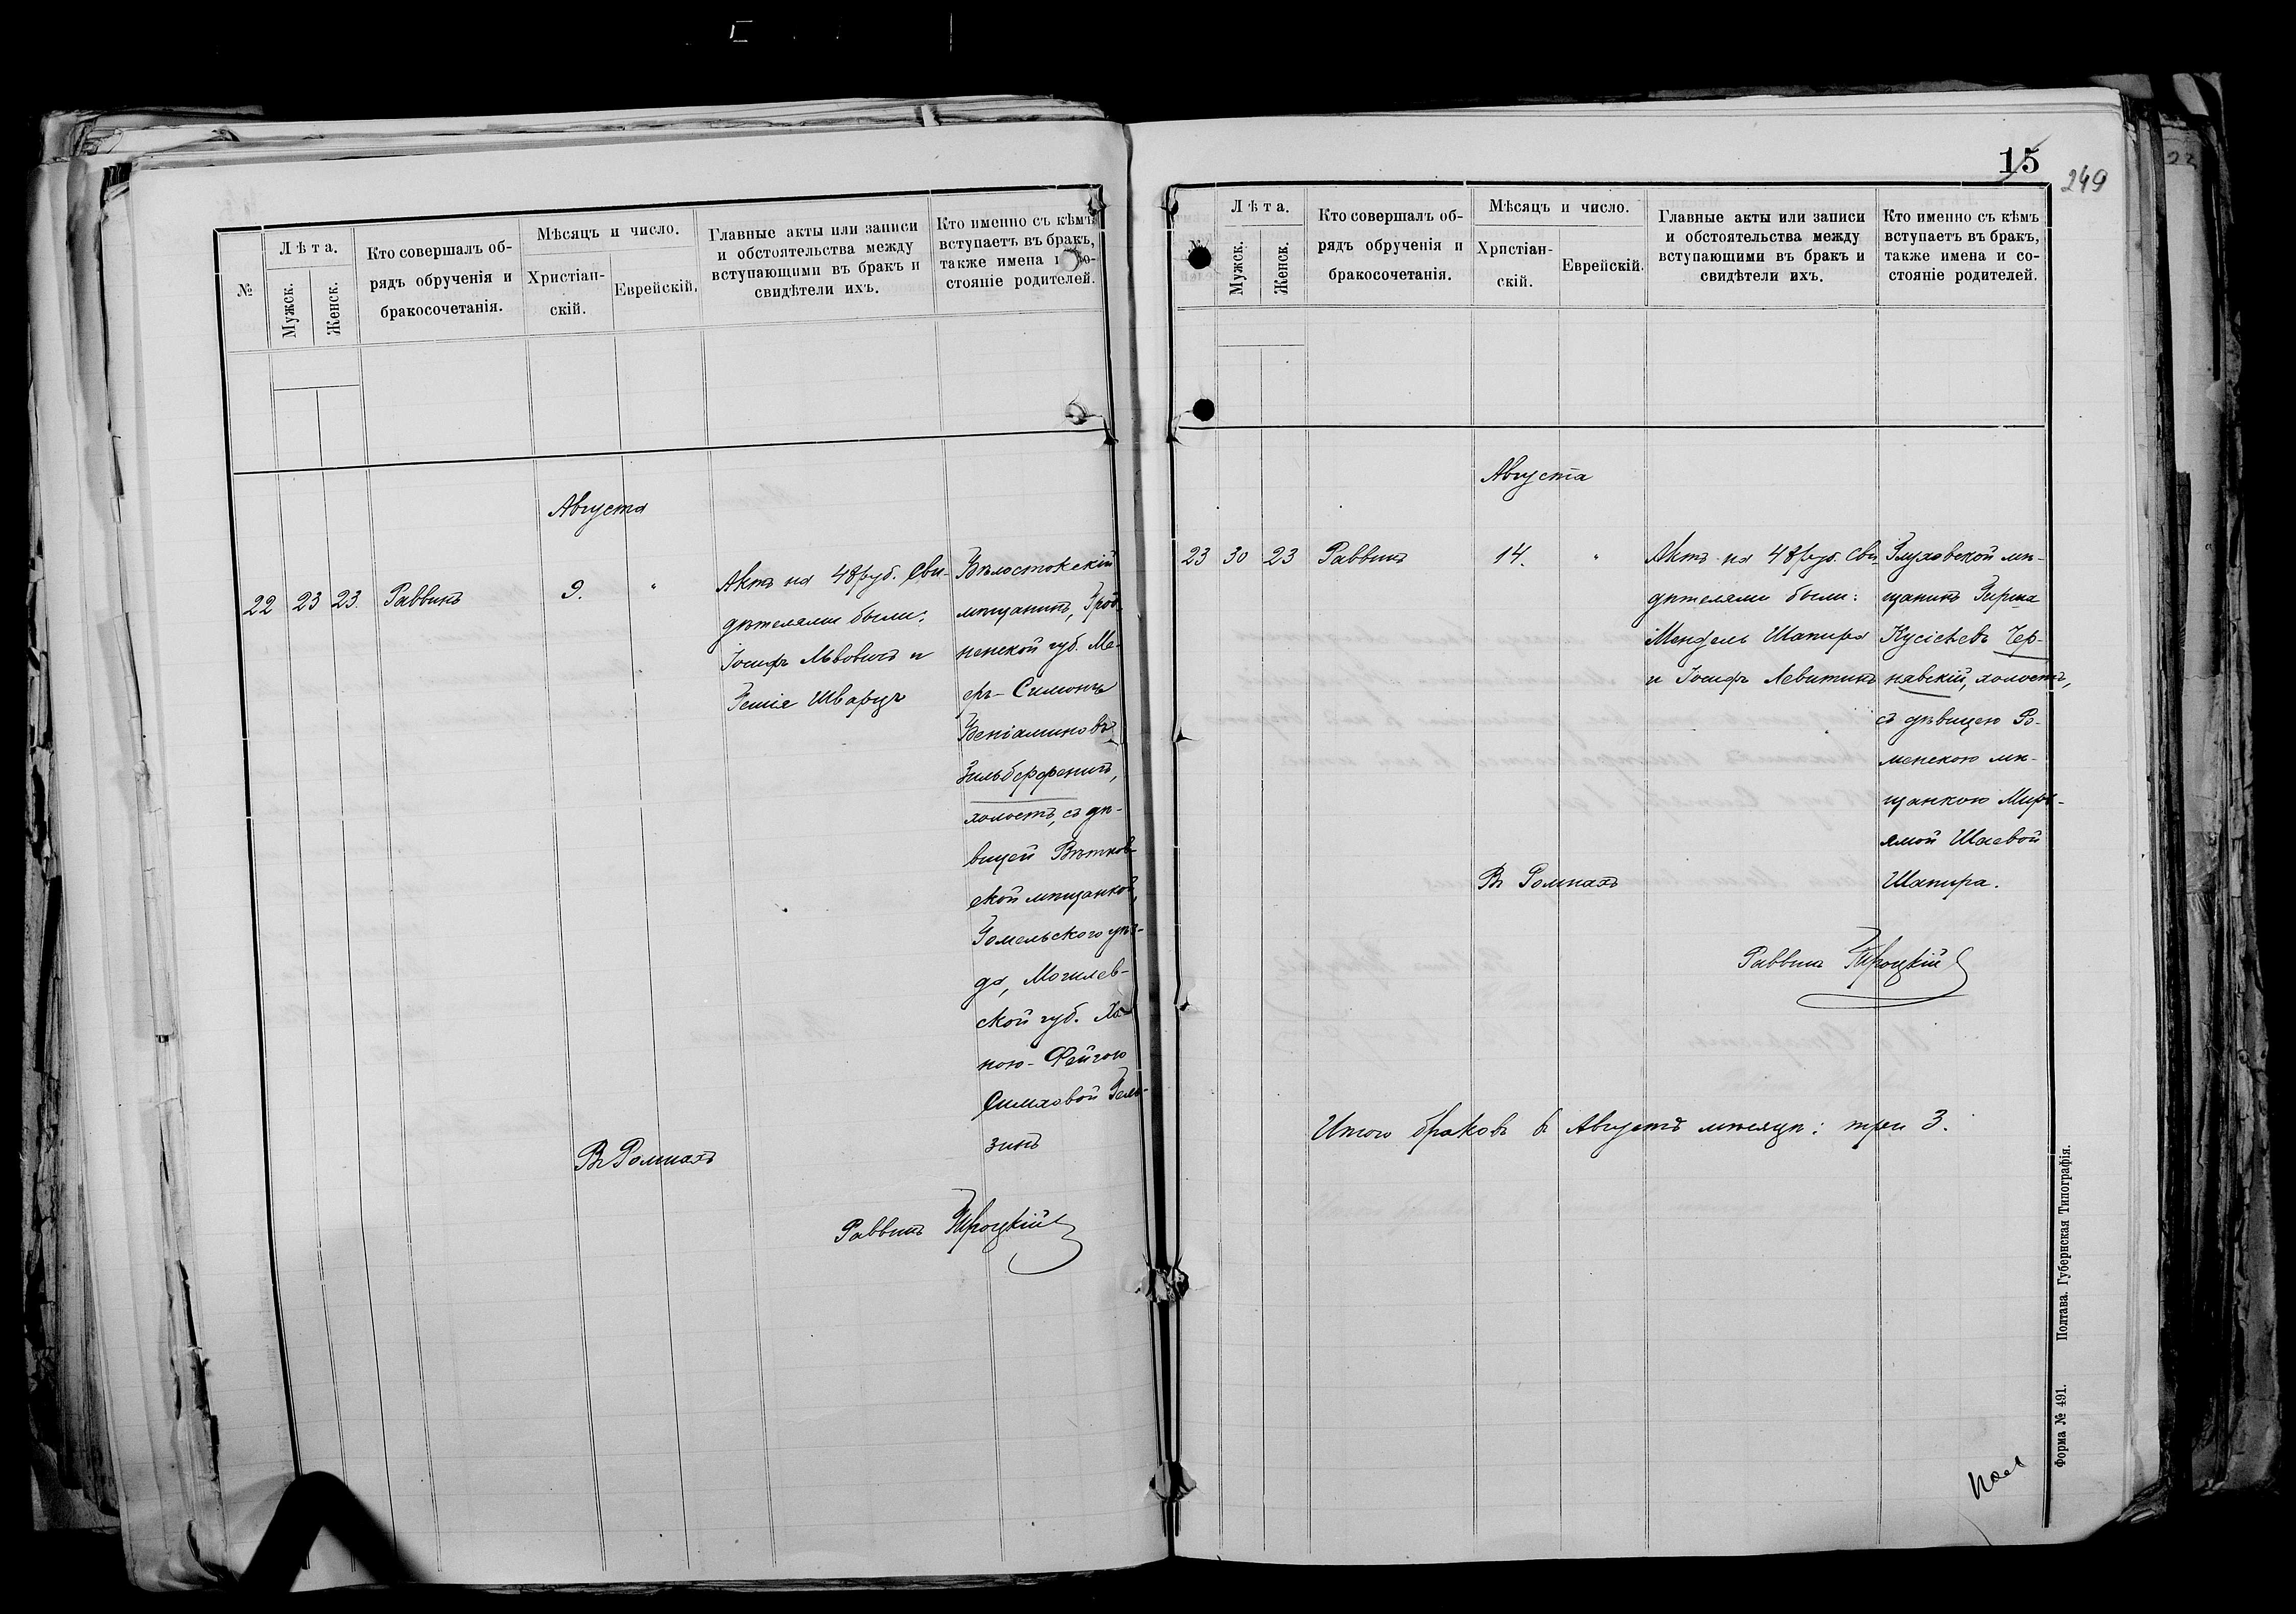 №
Лѣта.
Мужск.
Женск.
Кто совершалъ об-
рядъ обрученія и
бракосочетанія.
Мѣсяцъ и число.
Христіан-
скій.
Еврейскій.
Главные акты или записи
и обстоятельства между
вступающими въ бракъ и
свидѣтели ихъ.
Кто именно съ кѣмъ
вступаетъ въ бракъ,
также имена и со-
стояніе родителей.
Августа
22 23 23. Раввинъ 9. "
Актъ на 48 руб. Сви-
дѣтелями были:
Іосифъ Львовичъ и
Гешіе Шварцъ
Бѣлостокскій
мѣщанинъ, Грод-
ненской губ. Ме-
еръ-Симонъ
Веніаминовъ
Зильберфенигъ,
холостъ, съ дѣ-
вицей Вѣтков-
ской мѣщанкой,
Гомельскаго уѣз-
да, Могилев-
ской губ. Ха-
ною-Фейгою
Симховой Гель-
зинъ
Въ Ромнахъ
Раввинъ
15
249
№
Лѣта.
Мужск.
Женск.
Кто совершалъ об-
рядъ обрученія и
бракосочетанія.
Мѣсяцъ и число.
Христіан-
скій.
Еврейскій.
Главные акты или записи
и обстоятельства между
вступающими въ бракъ и
свидѣтели ихъ.
Кто именно съ кѣмъ
вступаетъ въ бракъ,
также имена и со-
стояніе родителей.
Августа
23 30 23 Раввинъ 14. "
Актъ на 48 руб. Сви-
дѣтелями были:
Мендель Шапира
и Іосифъ Левитинъ
Глуховской мѣ-
щанинъ Гирша
Кусіелевъ Чер-
нявскій, холостъ,
съ дѣвицею Ро-
менскою мѣ-
щанкою Мирь-
ямой Шаевой
Шапира.
Въ Ромнахъ
Раввинъ
Итого браковъ въ Августѣ мѣсяцѣ: три 3.
Форма № 491. Полтава. Губернская Типографія.